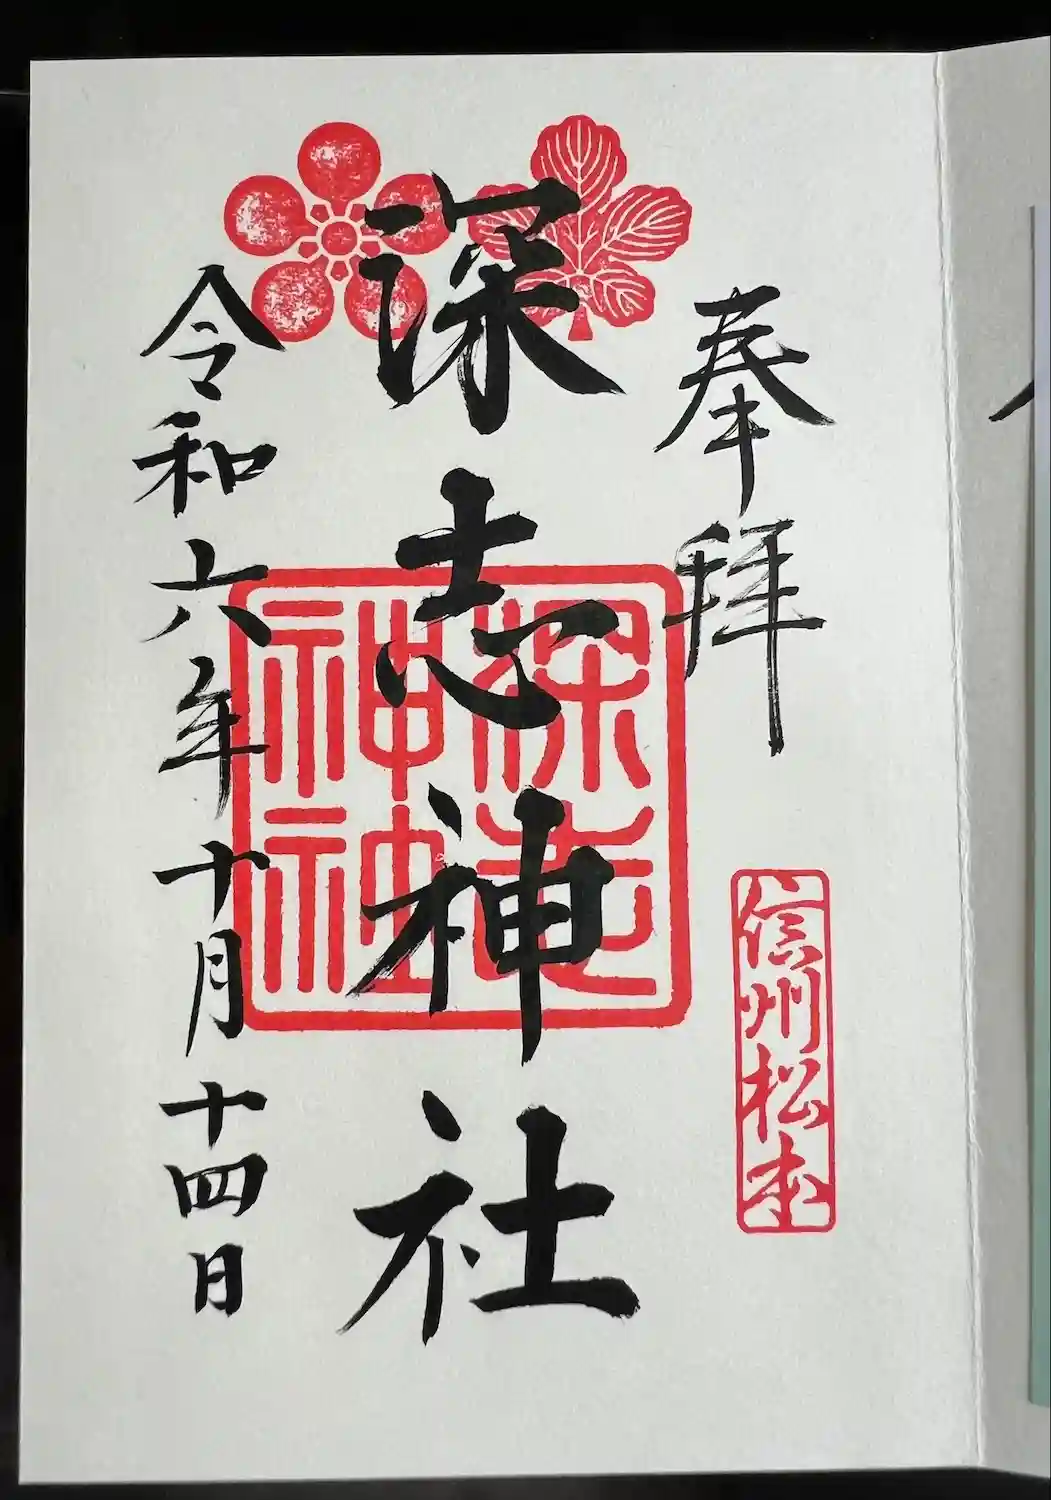 奉拝
信州松本
深志神社
深志神社
令和六年十月十四日